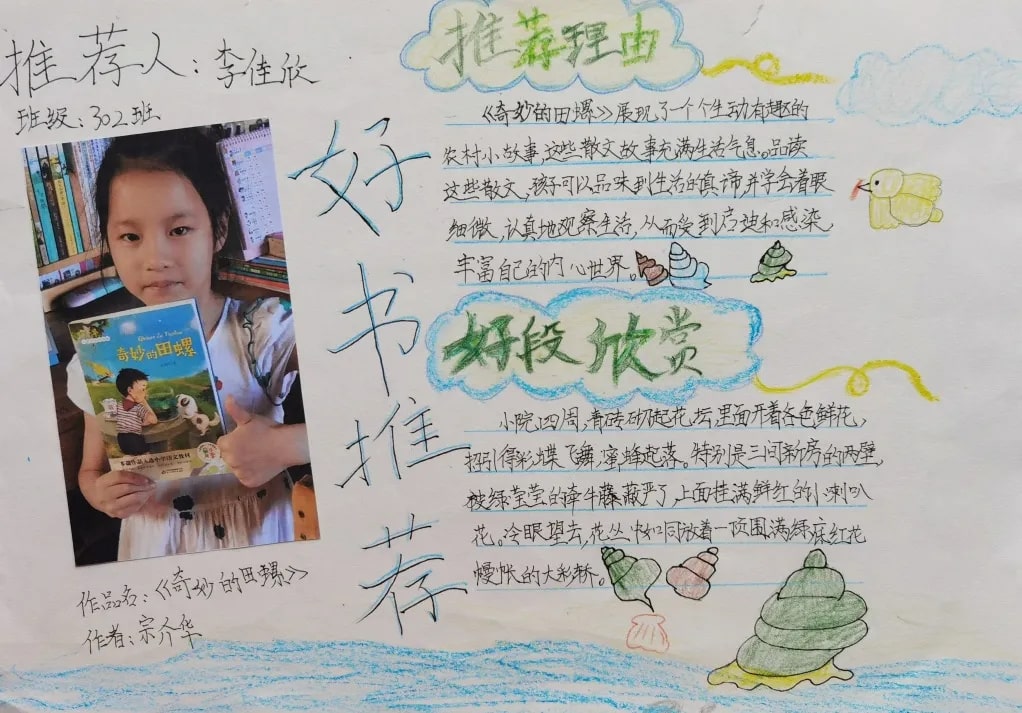 推荐人：李佳欣
班级：302班
奇妙的田螺
作品名：《奇妙的田螺》
作者：宗介华
好书推荐
推荐理由
《奇妙的田螺》展现了一个个生动有趣的
农村小故事,这些散文故事充满生活气息。品读
这些散文,孩子可以品味到生活的真谛并学会着眼
细微,认真地观察生活,从而受到启迪和感染,
丰富自己的内心世界。
好段欣赏
小院四周,青砖砌起花坛,里面开着各色鲜花,
招引得彩蝶飞舞,蜜蜂起落。特别是三间新房的两壁,
被绿莹莹的牵牛藤蔽严了,上面挂满鲜红的小喇叭
花。冷眼望去,花丛中如同放着一顶围满绿床红花
幔帐的大彩轿。